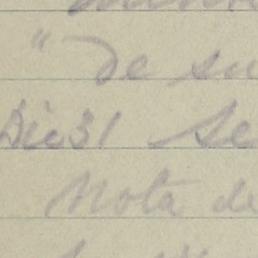 " De su
Dic 31 Se
Nota de